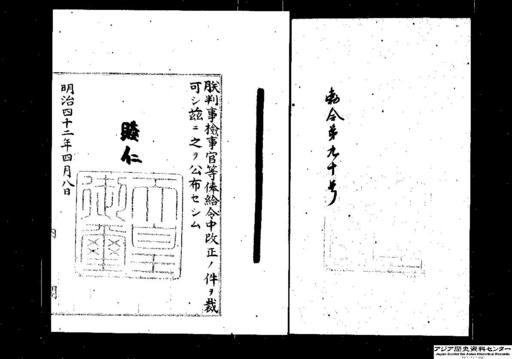 勅令第九十号
朕判事検事官等俸給令中改正ノ件ヲ裁
可シ茲ニ之ヲ公布セシム
睦仁
天皇御璽
明治四十二年四月八日
内閣
アジア歴史資料センター
Japan Center for Asian Historical Records